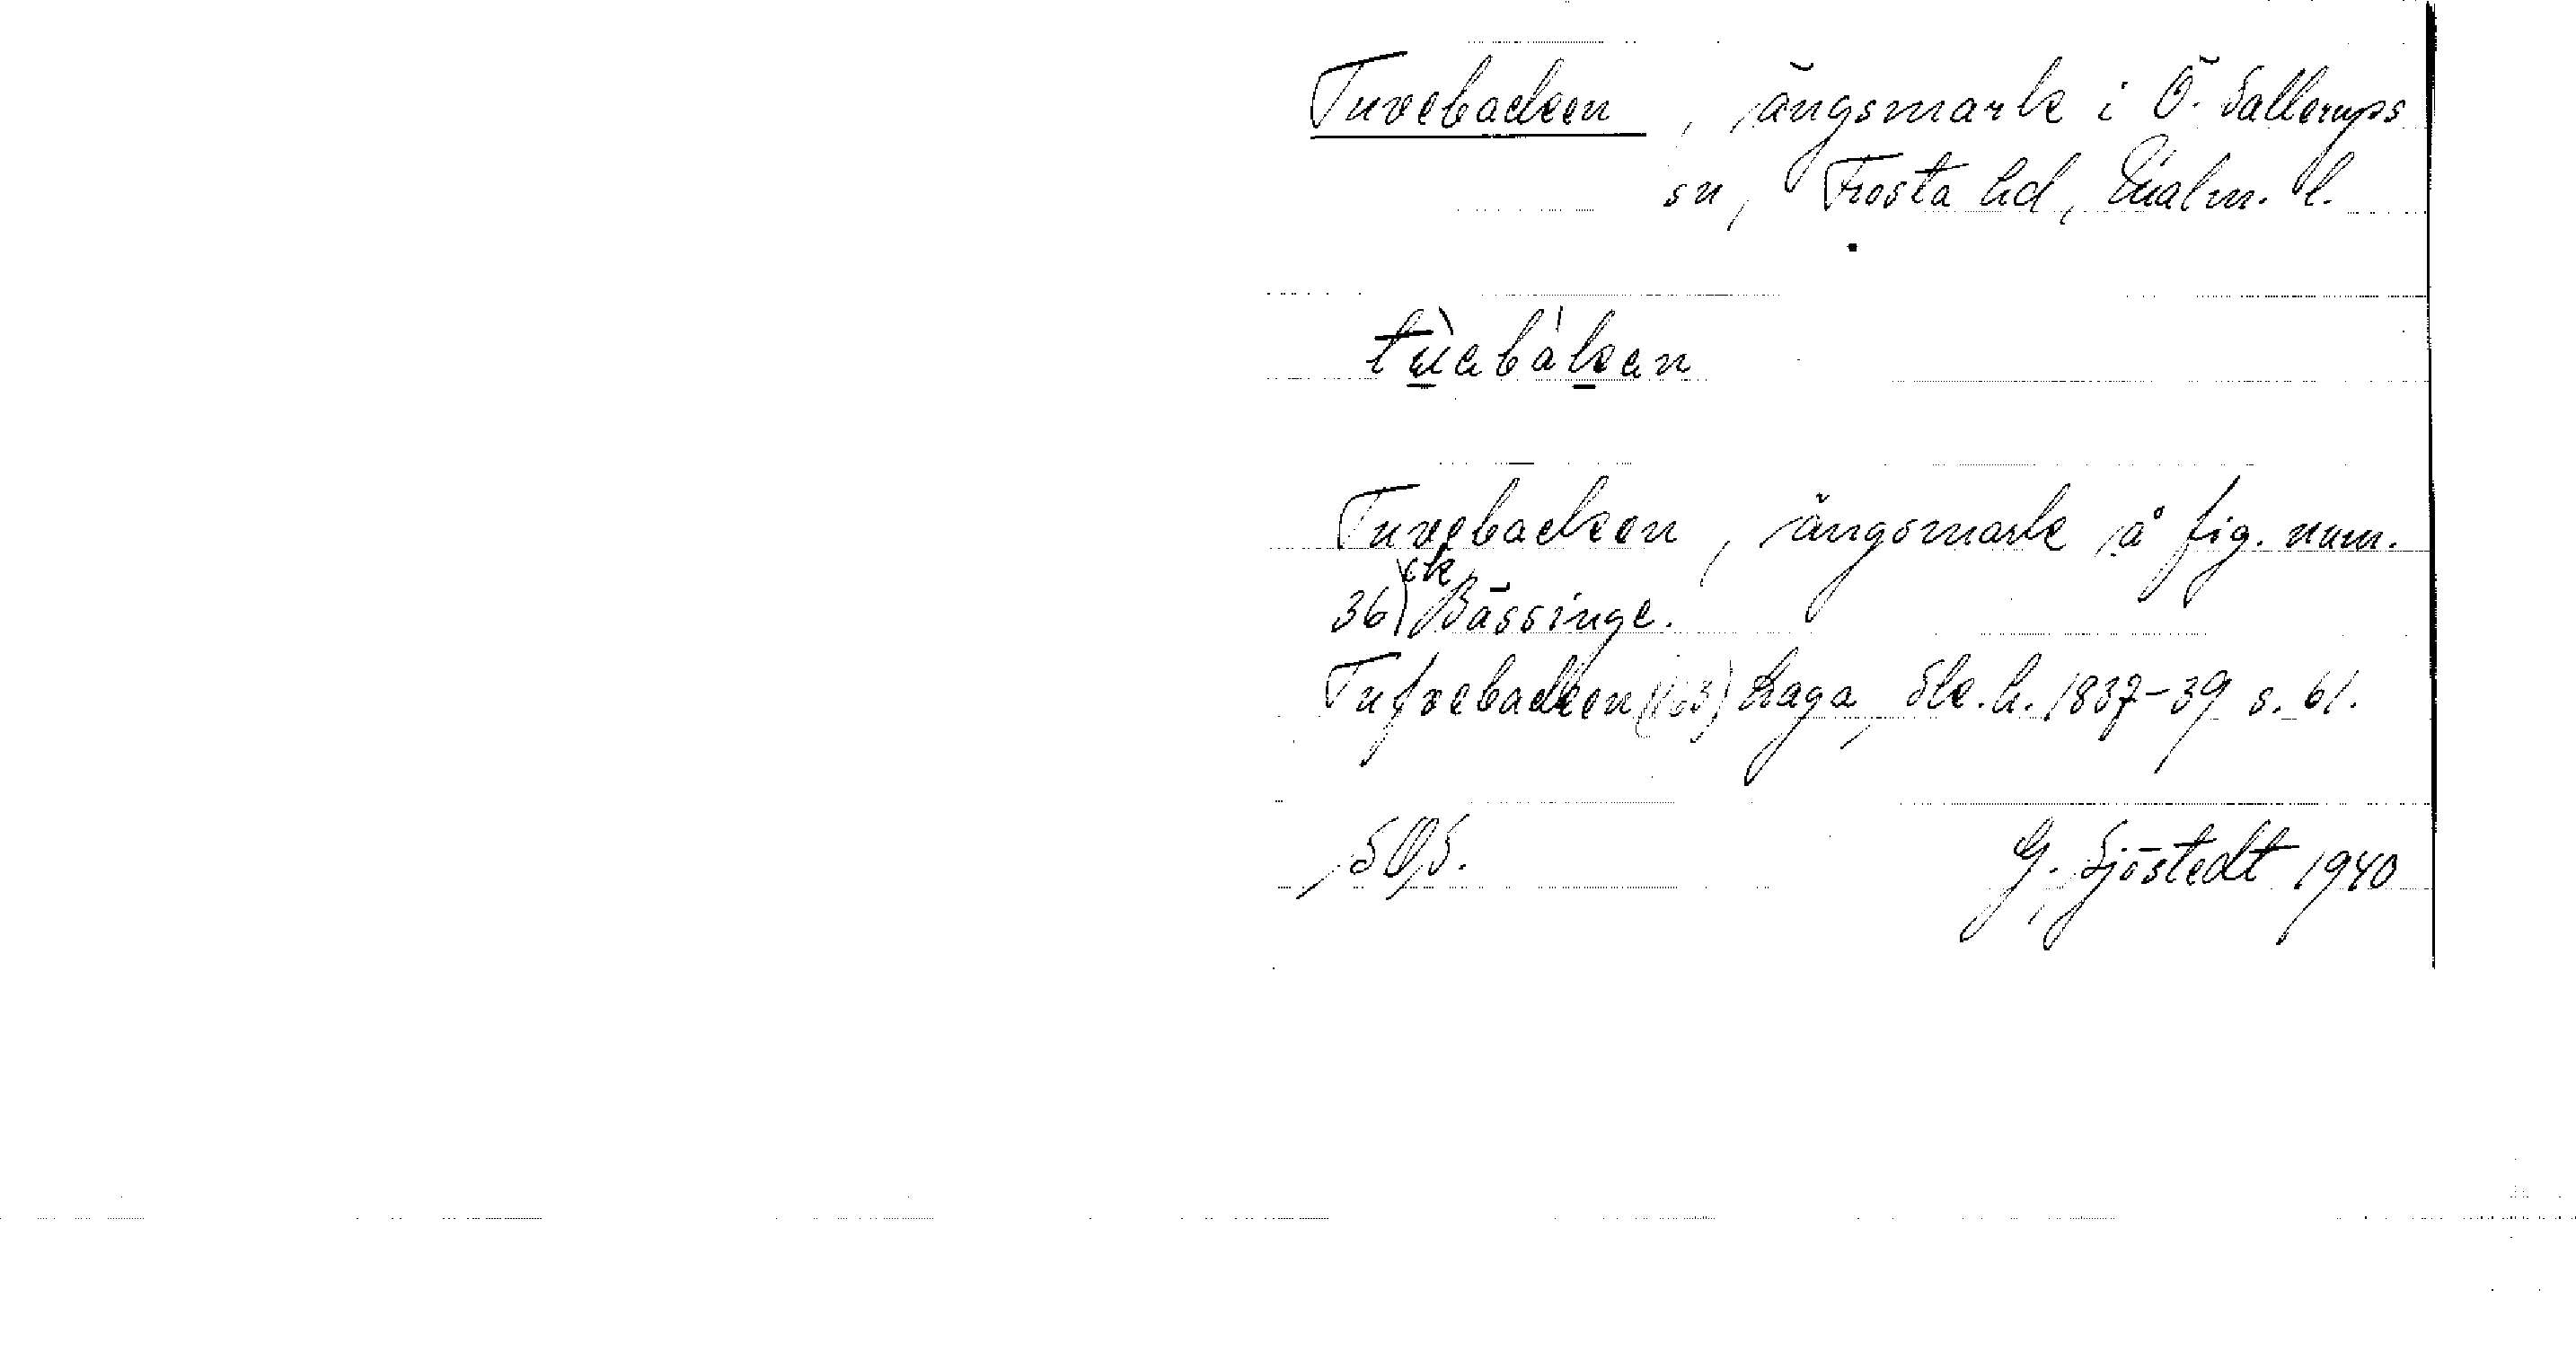 Tuvebacken, ängsmark i Ö. Sallerups
sn, Frosta hd, Malm. l.
tùebàken
Tuvebacken, ängsmark å fig. num.
36) ck Bässinge.
Tufvebacken (163) Laga Sk. h. 1837-39 s. 61.
SOS.
G. Sjöstedt 1940